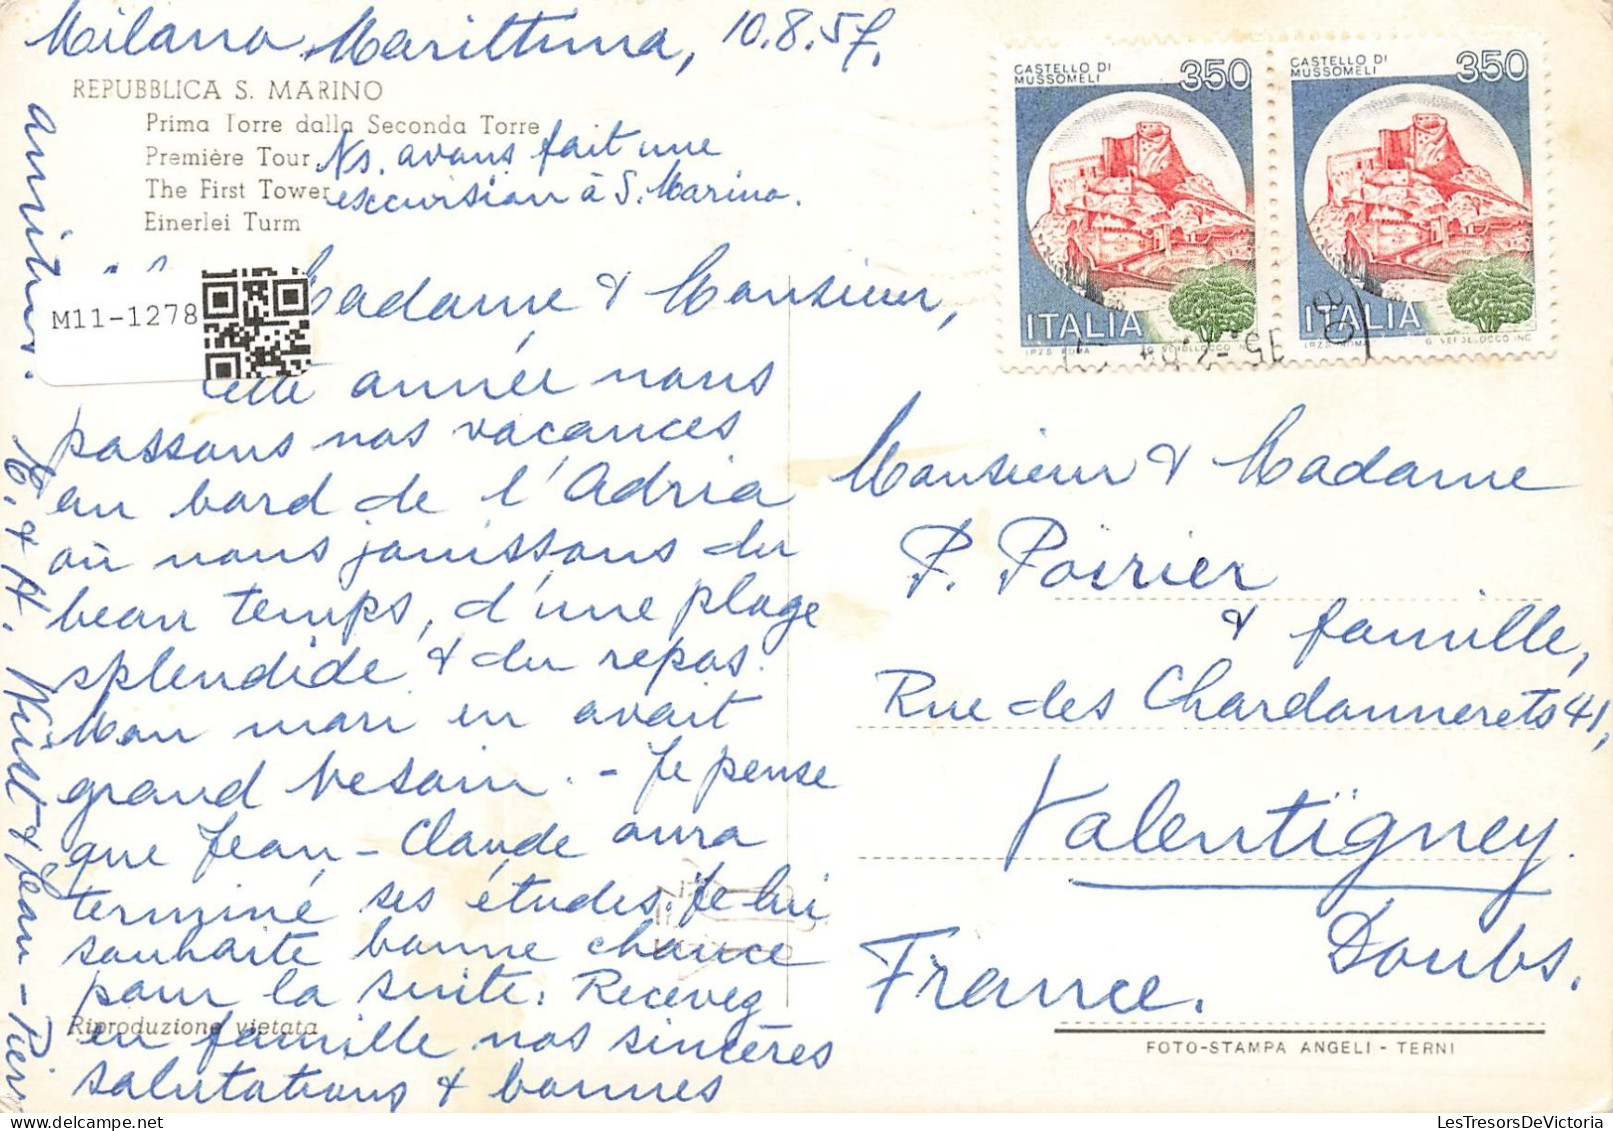 Milano Marittima, 10.8.57.
REPUBBLICA S. MARINO
Prima Torre dalla Seconda Torre
Première Tour
The First Tower
Einerlei Turm
Ns. avons fait une
excursion à S. Marino.
Madame & Monsieur,
Cette année nous
passons nos vacances
au bord de l'Adria
où nous jouissons du
beau temps, d'une plage
splendide & du repos.
Mon mari en avait
grand besoin. - Je pense
que Jean-Claude aura
terminé ses études. Je lui
souhaite bonne chance
pour la suite. Recevez
en famille nos sincères
salutations & bonnes
amitiés.
M. & H. & Jean-Pierre
Riproduzione vietata
M11-1278
CASTELLO DI
MUSSOMELI
350
ITALIA
I.P.Z.S. ROMA
CASTELLO DI
MUSSOMELI
350
ITALIA
I.P.Z.S. ROMA
Monsieur & Madame
P. Poirier
& famille,
Rue des Chardonnerets 41,
Valentigney.
Doubs.
France.
FOTO-STAMPA ANGELI - TERNI
LesTresorsDeVictoria.com